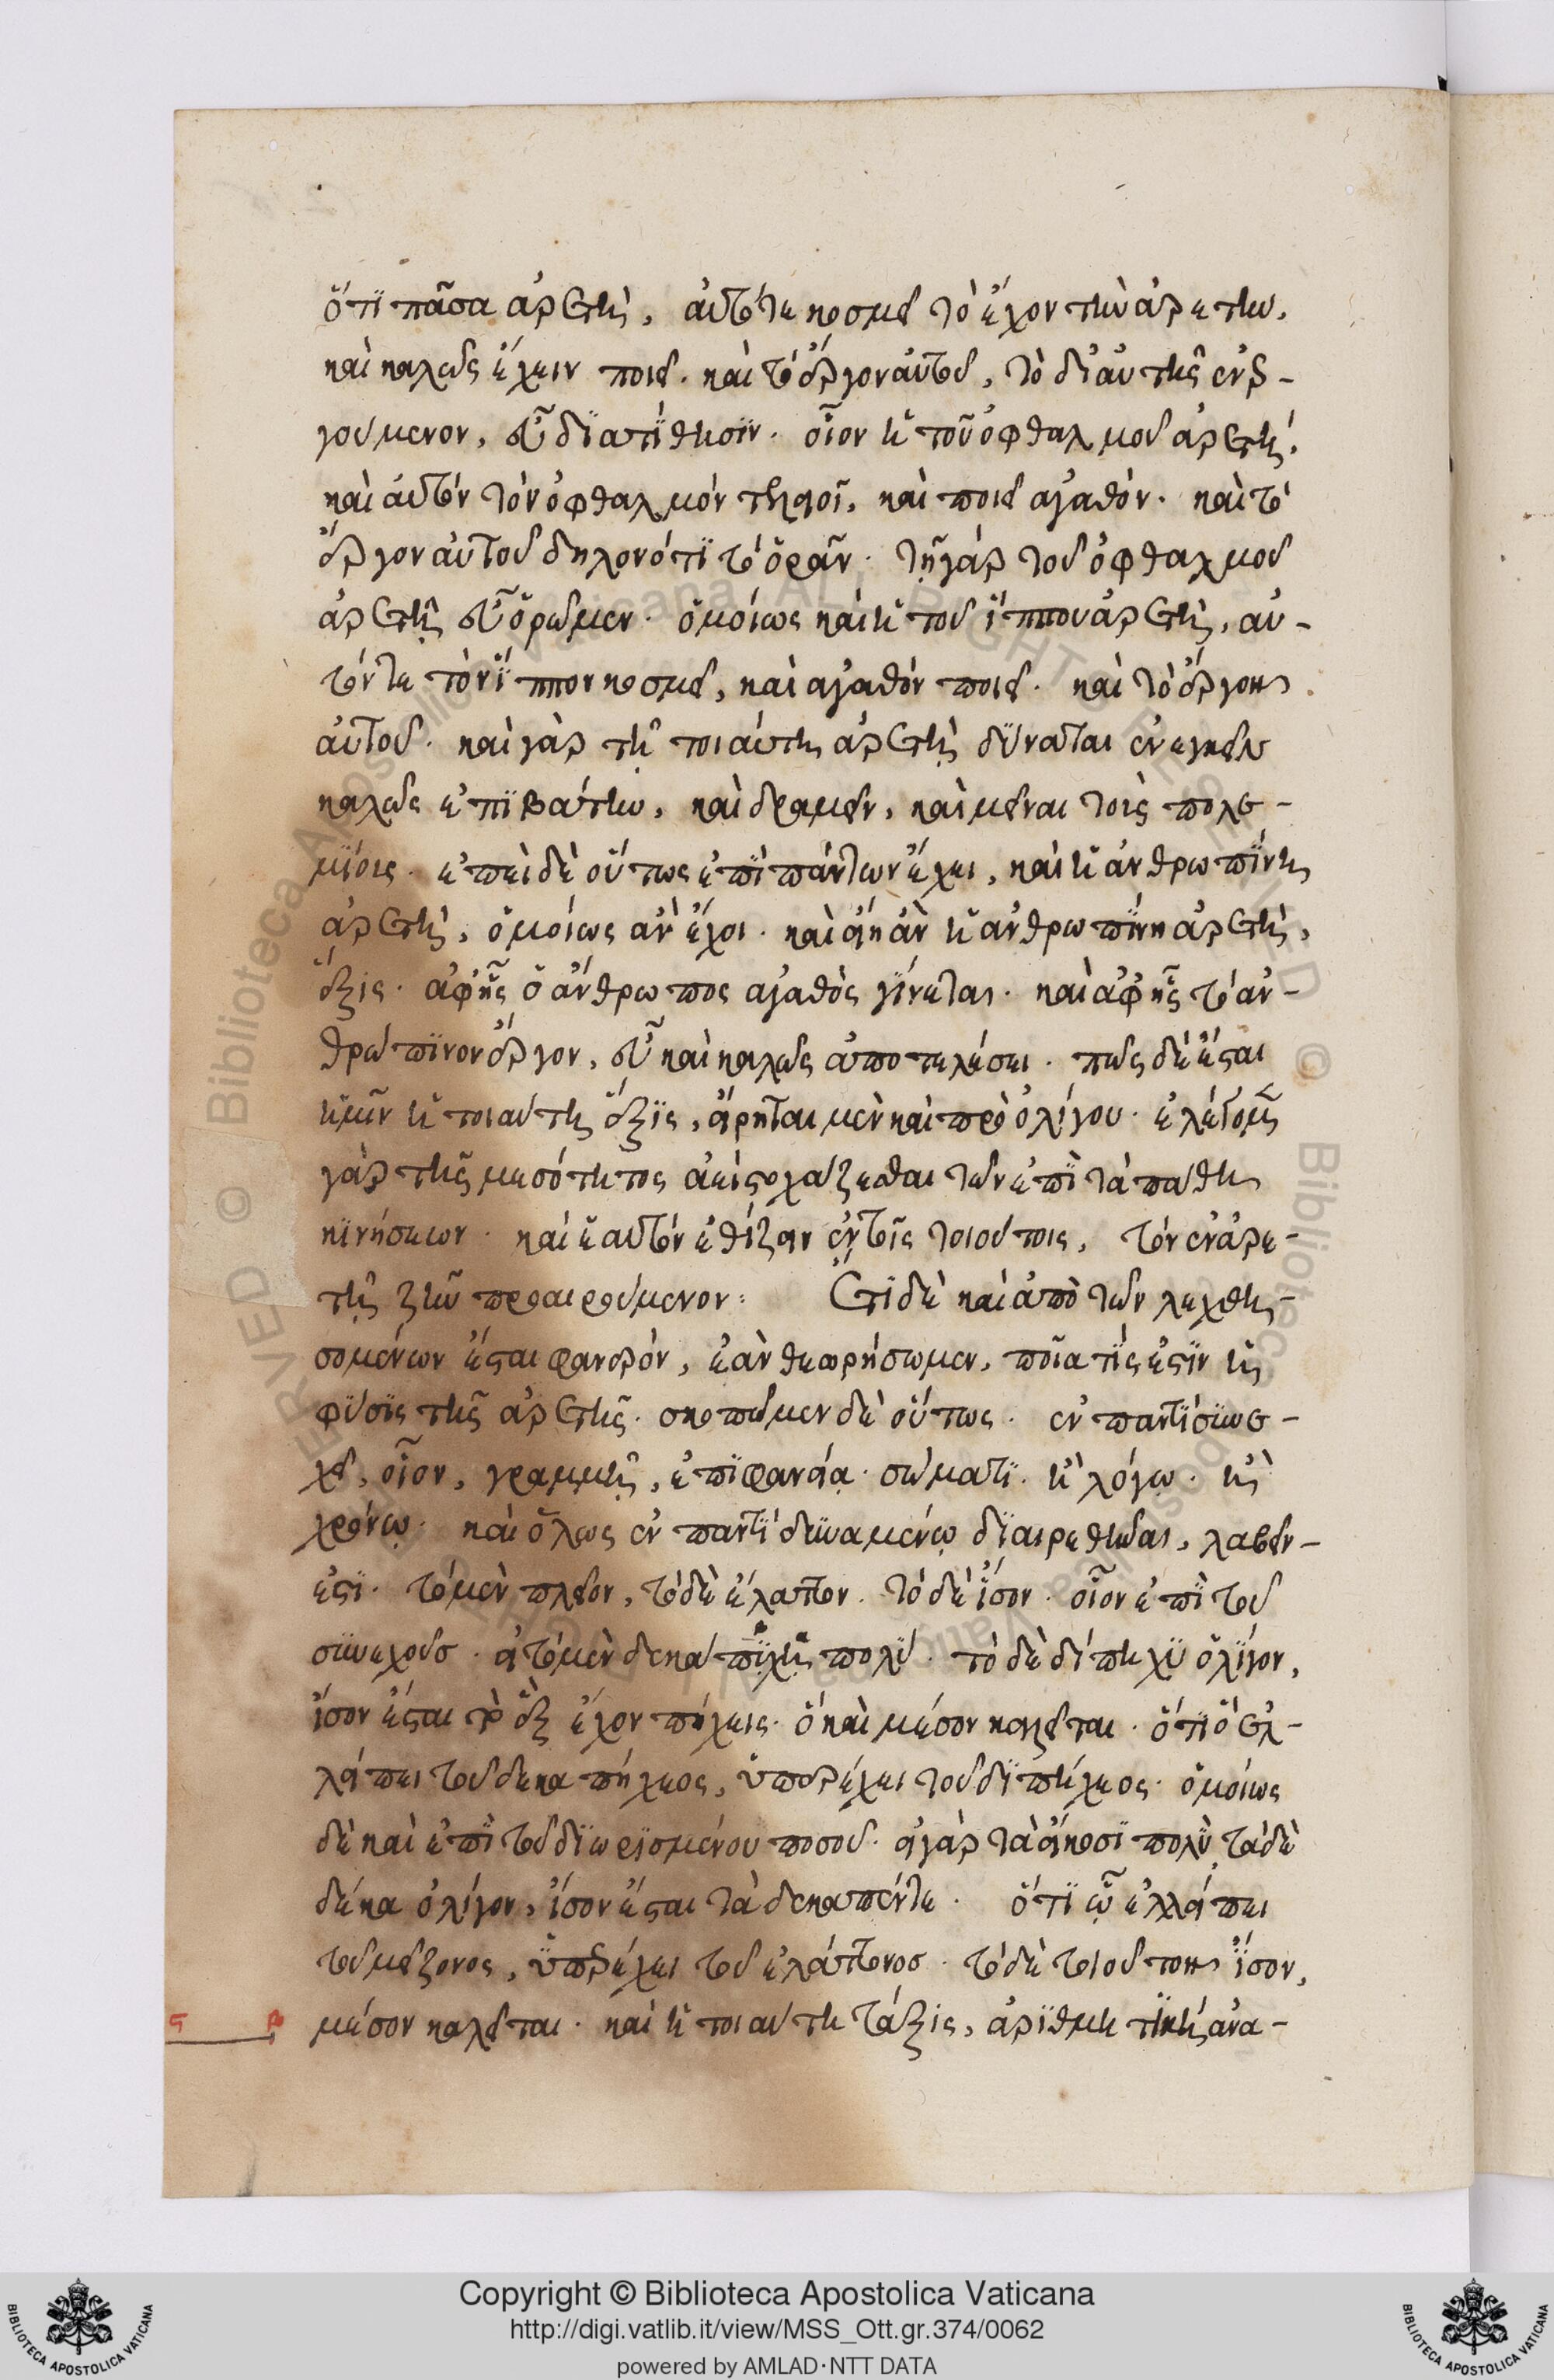 ὅτι πᾶσα ἀρετὴ, αὐτό τε κοσμεῖ τὸ ἔχον τὴν ἀρετὴν,
καὶ καλῶς ἔχειν ποιεῖ. καὶ τὸ ἔργον αὐτοῦ, τὸ δι' αὐτῆς ἐνερ-
γούμενον, εὖ διατίθησιν. οἷον ἡ τοῦ ὀφθαλμοῦ ἀρετὴ,
καὶ αὐτὸν τὸν ὀφθαλμὸν τηροῖ, καὶ ποιεῖ ἀγαθὸν. καὶ τὸ
ἔργον αὐτοῦ δηλονότι τὸ ὁρᾶν. τῇ γὰρ τοῦ ὀφθαλμοῦ
ἀρετῇ εὖ ὁρῶμεν. ὁμοίως καὶ ἡ τοῦ ἵππου ἀρετὴ, αὐ-
τόν τε τὸν ἵππον κοσμεῖ, καὶ ἀγαθὸν ποιεῖ. καὶ τὸ ἔργον
αὐτοῦ. καὶ γὰρ τῇ τοιαύτῃ ἀρετῇ δύναται ἐνεγκεῖν
καλῶς ἐπιβάτην, καὶ δραμεῖν, καὶ μεῖναι τοῖς πολε-
μίοις. ἐπεὶ δὲ οὕτως ἐπὶ πάντων ἔχει, καὶ ἡ ἀνθρωπίνη
ἀρετὴ, ὁμοίως ἂν ἔχοι. καὶ εἴη ἂν ἡ ἀνθρωπίνη ἀρετὴ,
ἕξις. ἀφ' ἧς ὁ ἄνθρωπος ἀγαθὸς γίνεται. καὶ ἀφ' ἧς τὸ ἀν-
θρώπινον ἔργον, εὖ καὶ καλῶς ἀποτελέσει. πῶς δὲ ἔσται
ἡμῖν ἡ τοιαύτη ἕξις, εἴρηται μὲν καὶ πρὸ ὀλίγου. ἐλέγομεν
γὰρ τῆς μεσότητος ἀεὶ στοχάζεσθαι τῶν ἐπὶ τὰ πάθη
κινήσεων. καὶ ἑαυτὸν ἐθίζειν ἐν τοῖς τοιούτοις, τὸν ἐν ἀρε-
τῇ ζῆν προαιρούμενον: Ἔτι δὲ καὶ ἀπὸ τῶν λεχθη-
σομένων ἔσται φανερὸν, ἐὰν θεωρήσωμεν, ποία τίς ἐστιν ἡ
φύσις τῆς ἀρετῆς. σκοπῶμεν δὲ οὕτως. ἐν παντὶ συνε-
χεῖ, οἷον, γραμμῇ, ἐπιφανείᾳ. σώματι. ἢ λόγῳ. ἢ
χρόνῳ. καὶ ὅλως ἐν παντὶ δυναμένῳ διαιρεθῆναι, λαβεῖν
ἐστι. τὸ μὲν πλεῖον, τὸ δὲ ἔλαττον. τὸ δὲ ἴσον. οἷον ἐπὶ τοῦ
συνεχοῦσ. εἰ τὸ μὲν δεκάπηχυ πολύ. τὸ δὲ δίπηχυ ὀλίγον,
ἴσον ἔσται τὸ ἓξ ἔχον πήχεις. ὃ καὶ μέσον καλεῖται. ὅτι ὃ ἐλ-
λείπει τοῦ δεκαπήχεος, ὑπερέχει τοῦ διπήχεος. ὁμοίως
δὲ καὶ ἐπὶ τοῦ διωρισμένου ποσοῦ. εἰ γὰρ τὰ εἴκοσι πολὺ τὰ δὲ
δέκα ὀλίγον, ἴσον ἔσται τὰ δεκαπέντε. ὅτι ᾧ ἐλλείπει
τοῦ μείζονος, ὑπερέχει τοῦ ἐλάττονοσ. τὸ δὲ τοιοῦτον ἴσον,
μέσον καλεῖται. καὶ ἡ τοιαύτη τάξις, ἀριθμητικὴ ἀνα-
Copyright © Biblioteca Apostolica Vaticana
http://digi.vatlib.it/view/MSS_Ott.gr.374/0062
powered by AMLAD·NTT DATA